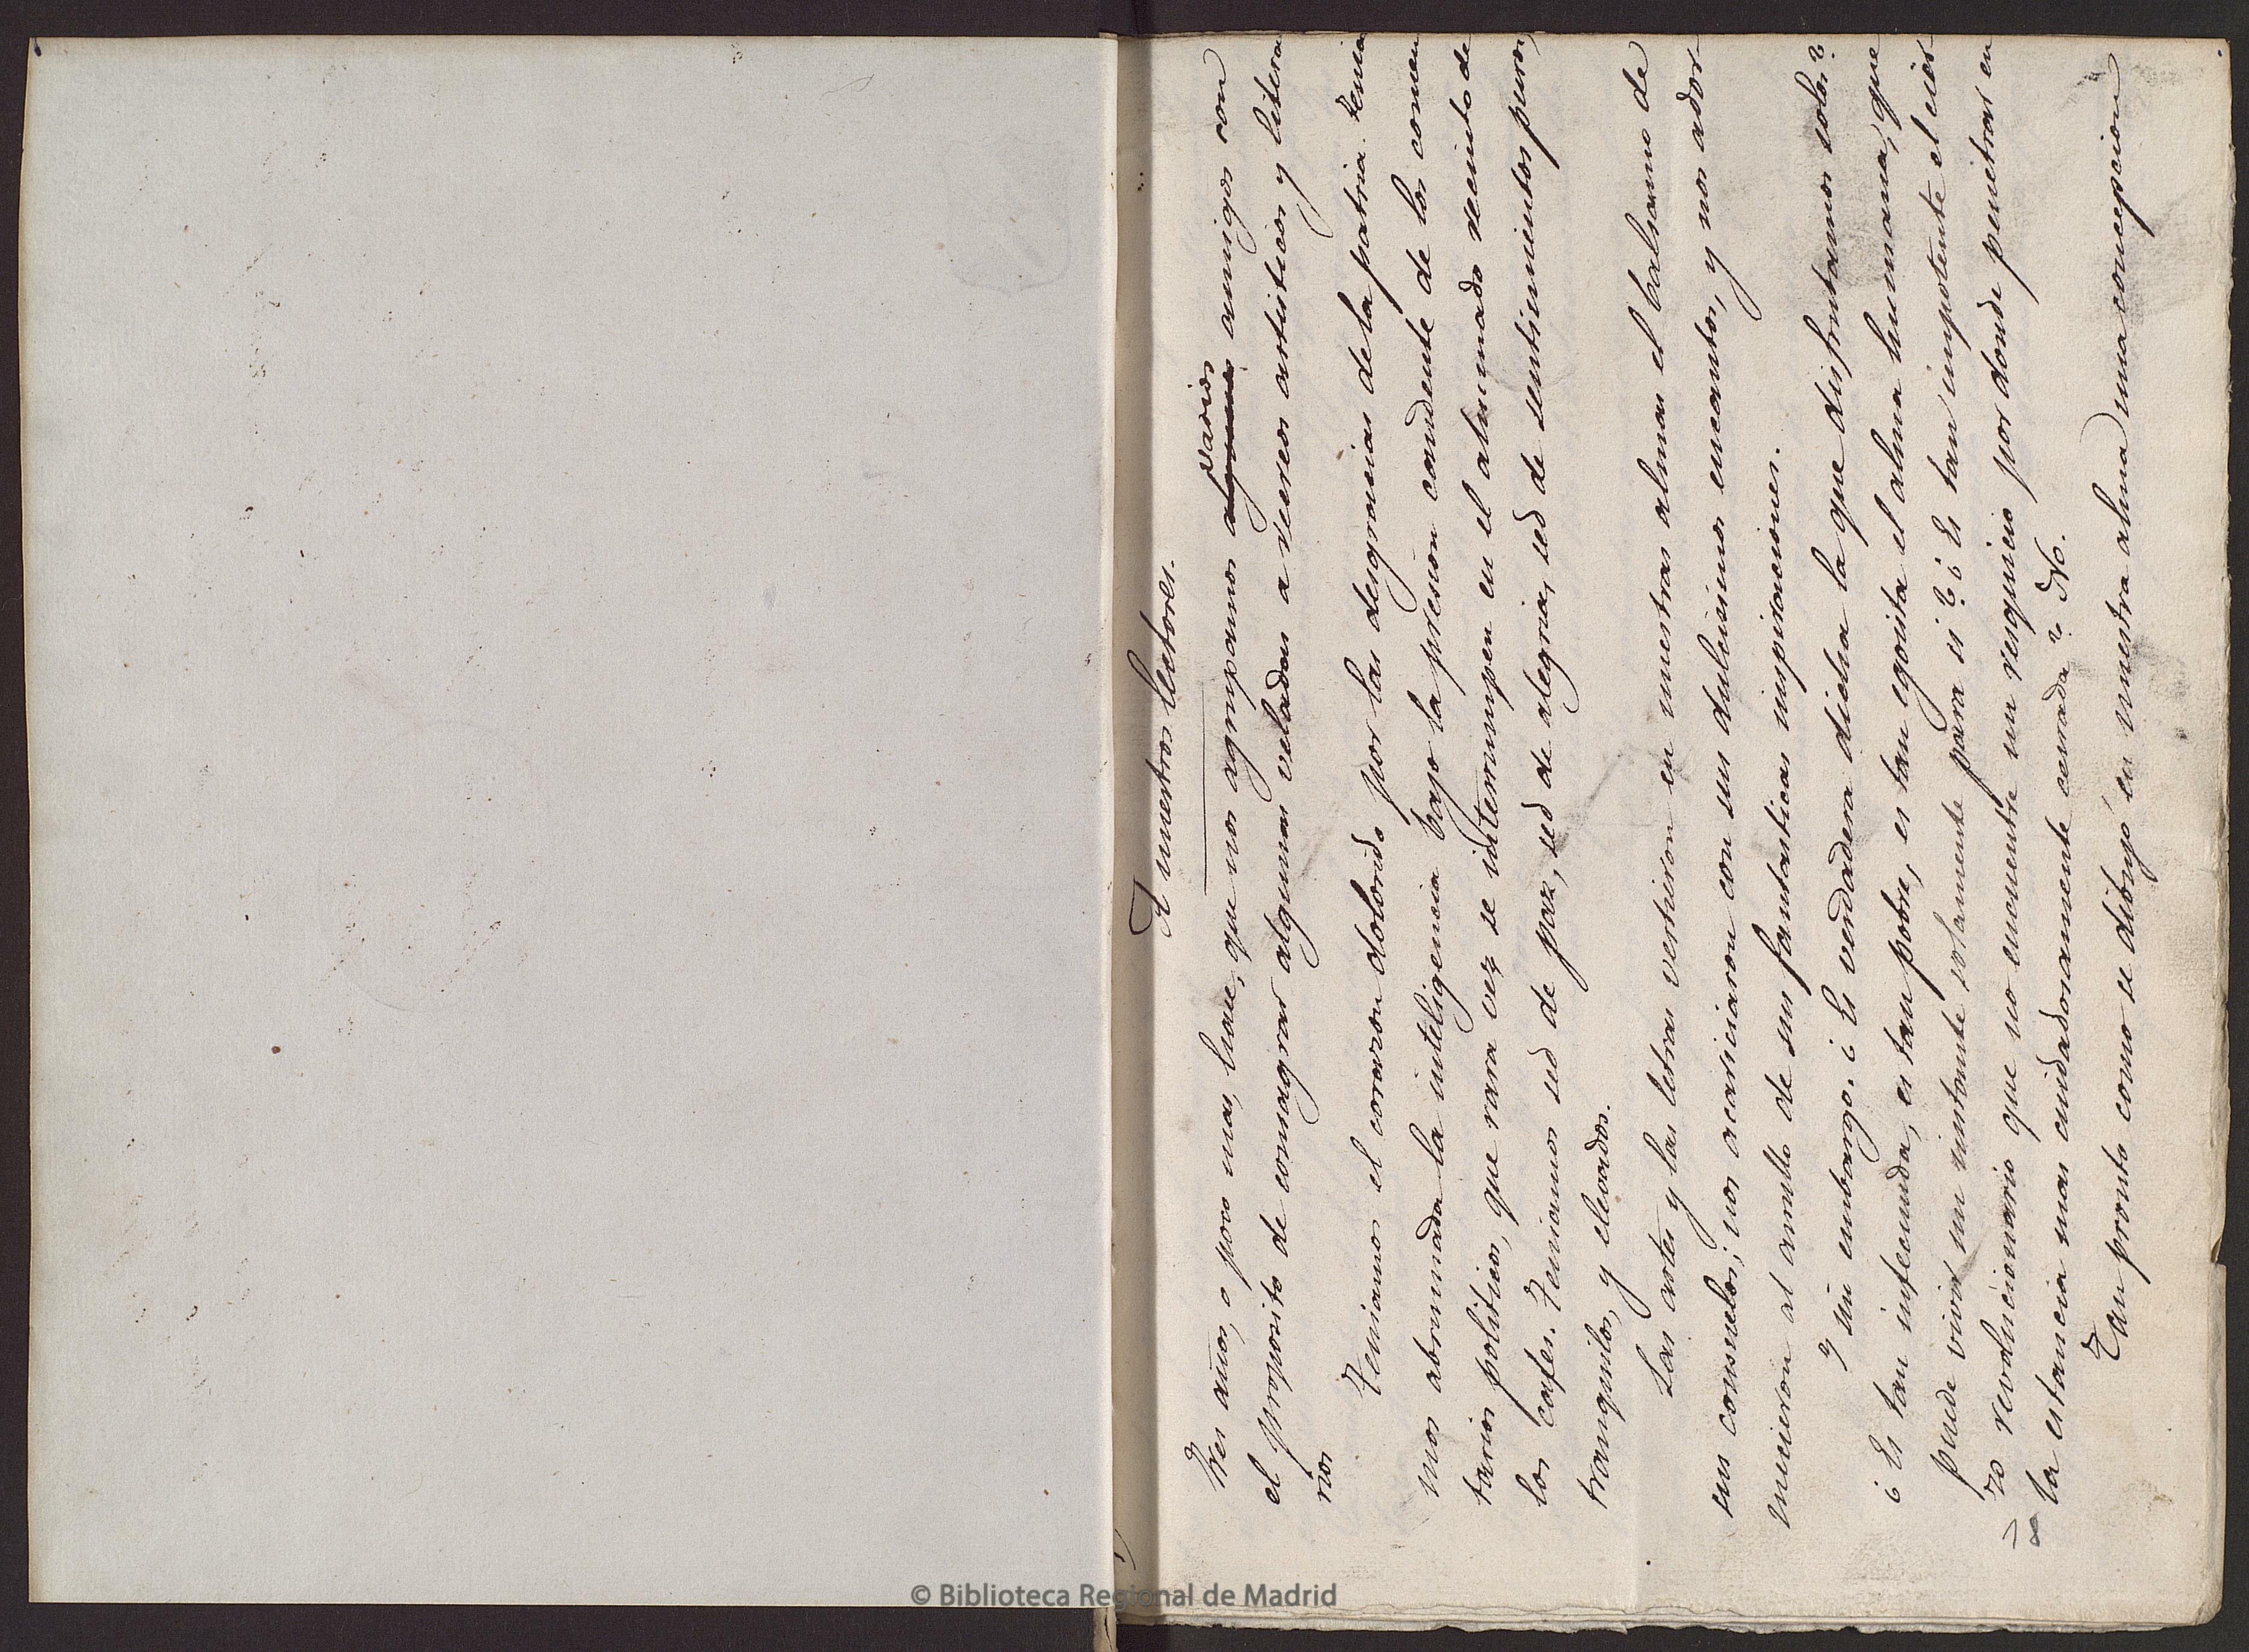 A nuestros lectores.
Tres años, o poco mas, hace, que nos agrupamos algunos varios amigos con
el proposito de consagrar algunas veladas a recreos artisticos y litera
rios
Teniamos el corazon dolorido por las desgracias de la patria. Tenia
mos abrumada la inteligencia bajo la presion candente de los comen
tarios politicos, que rara vez se interrumpen en el ahumado recinto de
los cafes. Teniamos sed de paz, sed de alegria, sed de sentimientos puros,
tranquilos, y elevados.
Las artes y las letras vertieron en nuestras almas el balsamo de
sus consuelos; nos acariciaron con sus dulcisimos encantos, y nos ador
mecieron al arrullo de sus fantasticas inspiraciones.
Y sin embargo. ¿Es verdadera dicha la que disfrutamos solos?
¿Es tan infecunda, es tan pobre, es tan egoista el alma humana, que
puede vivir un instante solamente para si? ¿Es tan impotente el cier
zo revolucionario que no encuentre un resquicio por donde penetrar en
la estancia mas cuidadosamente cerrada? No.
Tan pronto como se dibujó en nuestra alma una concepcion
© Biblioteca Regional de Madrid